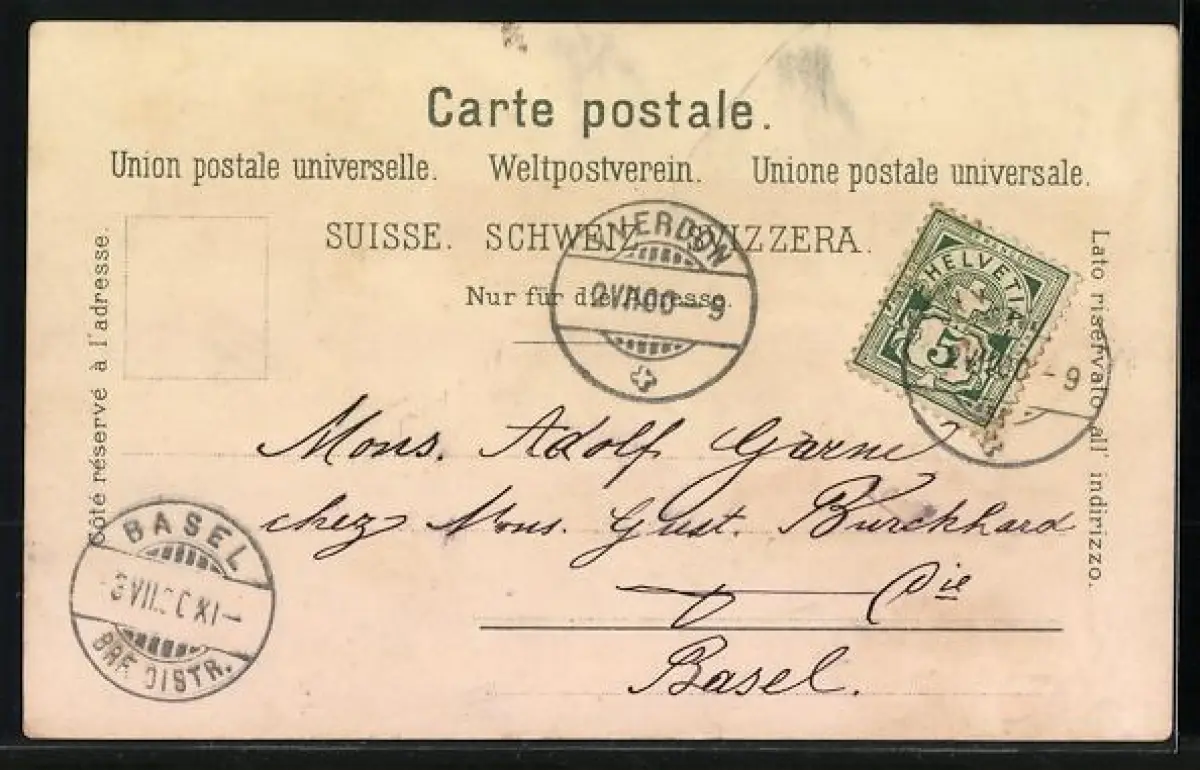 Carte postale.
Union postale universelle. Weltpostverein. Unione postale universale.
SUISSE. SCHWEIZ. SVIZZERA.
Nur für die Adresse.
Côté réservé à l'adresse.
Lato riservato all' indirizzo.
YVERDON
2 VII 00 - 9
HELVETIA
5
- 9
Mons. Adolf
chez Mons. Gust. Burckhard
& Cie
Basel.
BASEL
3 VII. XI -
BRF. DISTR.